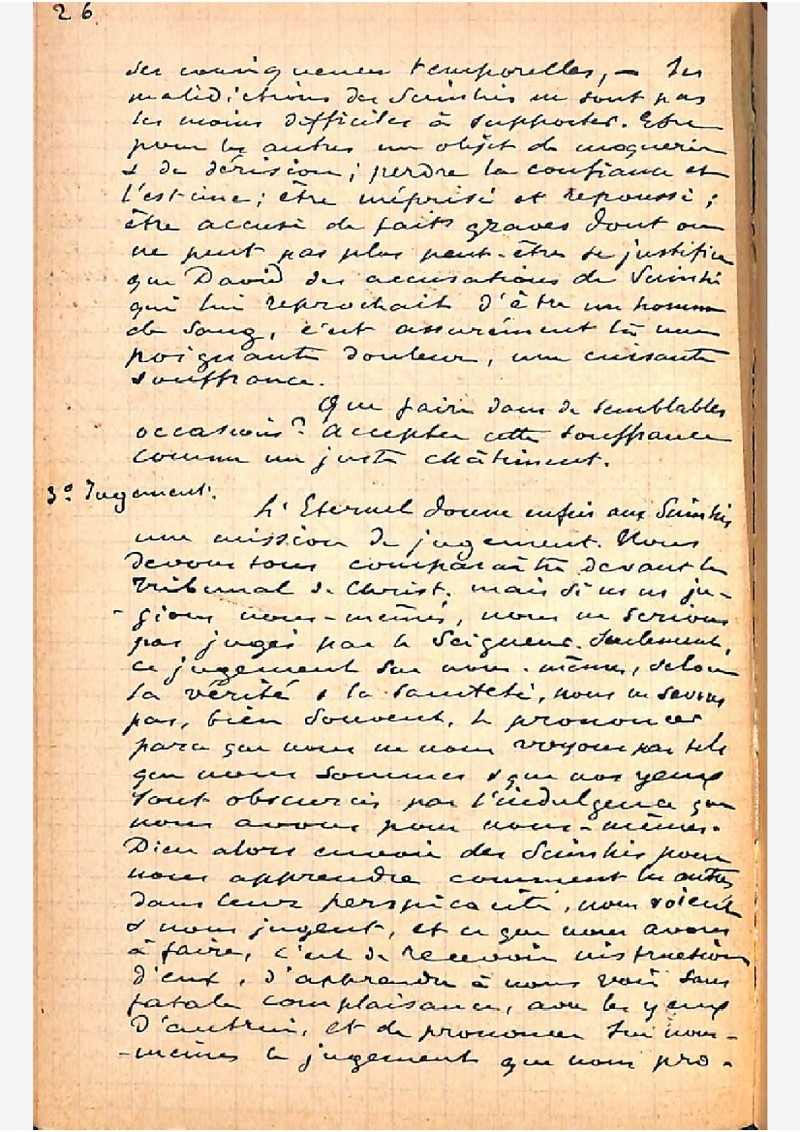 26
des conséquences temporelles, — Les
malédictions des Schimhis ne sont pas
les moins difficiles à supporter. Etre
pour les autres un objet de moquerie
& de dérision ; perdre la confiance et
l'estime ; être méprisé et repoussé ;
être accusé de faits graves dont on
ne peut pas plus peut-être se justifier
que David des accusations de Schimhi
qui lui reprochait d'être un homme
de sang, c'est assurément là une
poignante douleur, une cuisante
souffrance.
Que faire dans de semblables
occasions ? Accepter cette souffrance
comme un juste châtiment.
3º Jugement.
L'Eternel donne enfin aux Schimhis
une mission de jugement. Nous
devons tous comparaître devant le
Tribunal de Christ. mais si ns ns ju-
-gions nous-mêmes, nous ne serions
pas jugés par le Seigneur. Seulement,
ce jugement sur nous-mêmes, selon
la vérité & la sainteté, nous ne savons
pas, bien souvent, le prononcer
parce que nous ne nous voyons pas tels
que nous sommes & que nos yeux
sont obscurcis par l'indulgence que
nous avons pour nous-mêmes.
Dieu alors envoie des Schimhis pour
nous apprendre comment les autres,
dans leur perspicacité, nous voient
& nous jugent, et ce que nous avons
à faire, c'est de recevoir instruction
d'eux, d'apprendre à nous voir sans
fatale complaisance, avec les yeux
d'autrui, et de prononcer sur nous-
-mêmes le jugement que nous pro-